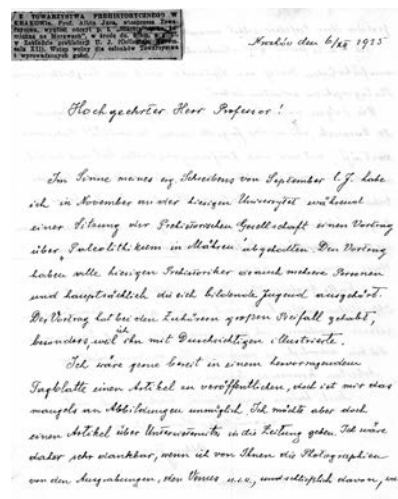 Z TOWARZYSTWA PREHISTORYCZNEGO W
KRAKOWIE. Prof. Alfin Jura,
w Zakładzie prehistorii U. J.
XIII. Wstęp wolny dla członków Towarzystwa
i wprowadzonych gości.
Kraków den 6/XII 1935
Hochgeehrter Herr Professor!
Im Sinne meines erg. Schreibens von September l. J. habe
ich in November an der hiesigen Universytet während
einer Sitzung der Prehistorischen Gesellschaft einen Vortrag
über „Paleolithikum in Mähren" abgehalten. Den Vortrag
haben alle hiesigen Prehistoriker worauch mehrere Personen
und hauptsächlich die sich bildende Jugend angehört.
Der Vortrag hat bei den Zuhörern großen Beifall gehabt,
besonders, weil ich ihn mit Durchsichtigen illustrierte.
Ich wäre gerne bereit in einem hervorragendem
Tagblatte einen Artikel zu veröffentlichen, doch ist mir das
mangels an Abbildungen unmöglich. Ich möchte aber doch
einen Artikel über Unterwisternitz in die Zeitung geben. Ich wäre
daher sehr dankbar, wenn ich von Ihnen die Photographien
von den Ausgrabungen, den Venus u.s.w., und schließlich davon,